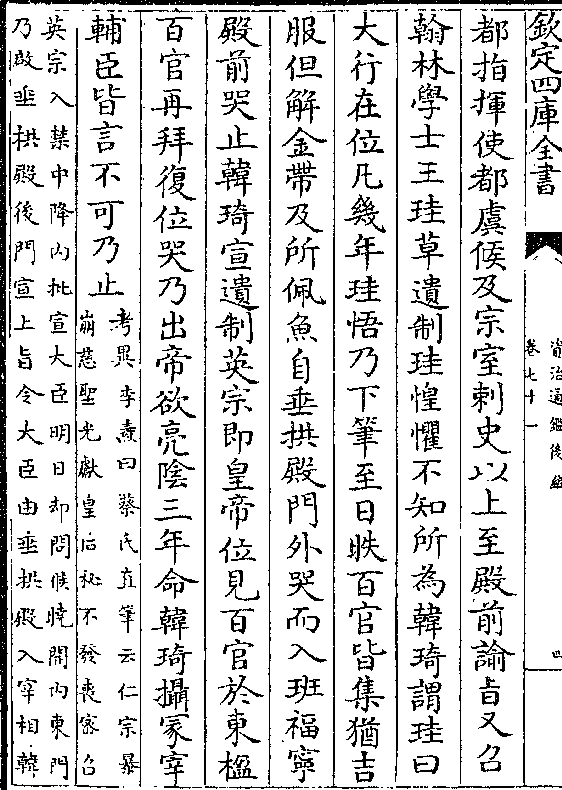 欽定四庫全書
資治通鑑後編
卷七十一
四
都指揮使都虞候及宗室刺史以上至殿前諭旨又召
翰林學士王珪草遺制珪惶懼不知所為韓琦謂珪曰
大行在位凡幾年珪悟乃下筆至日昳百官皆集猶吉
服但解金帶及所佩魚自垂拱殿門外哭而入班福寧
殿前哭止韓琦宣遺制英宗即皇帝位見百官於東楹
百官再拜復位哭乃出帝欲亮陰三年命韓琦攝冢宰
輔臣皆言不可乃止
考異李燾曰蔡氏直筆云仁宗暴
崩慈聖光獻皇后秘不發喪密召
英宗入禁中降内批宣大臣明日却問候曉開内東門
乃啟垂拱殿後門宣上旨令大臣由垂拱殿入宰相韓